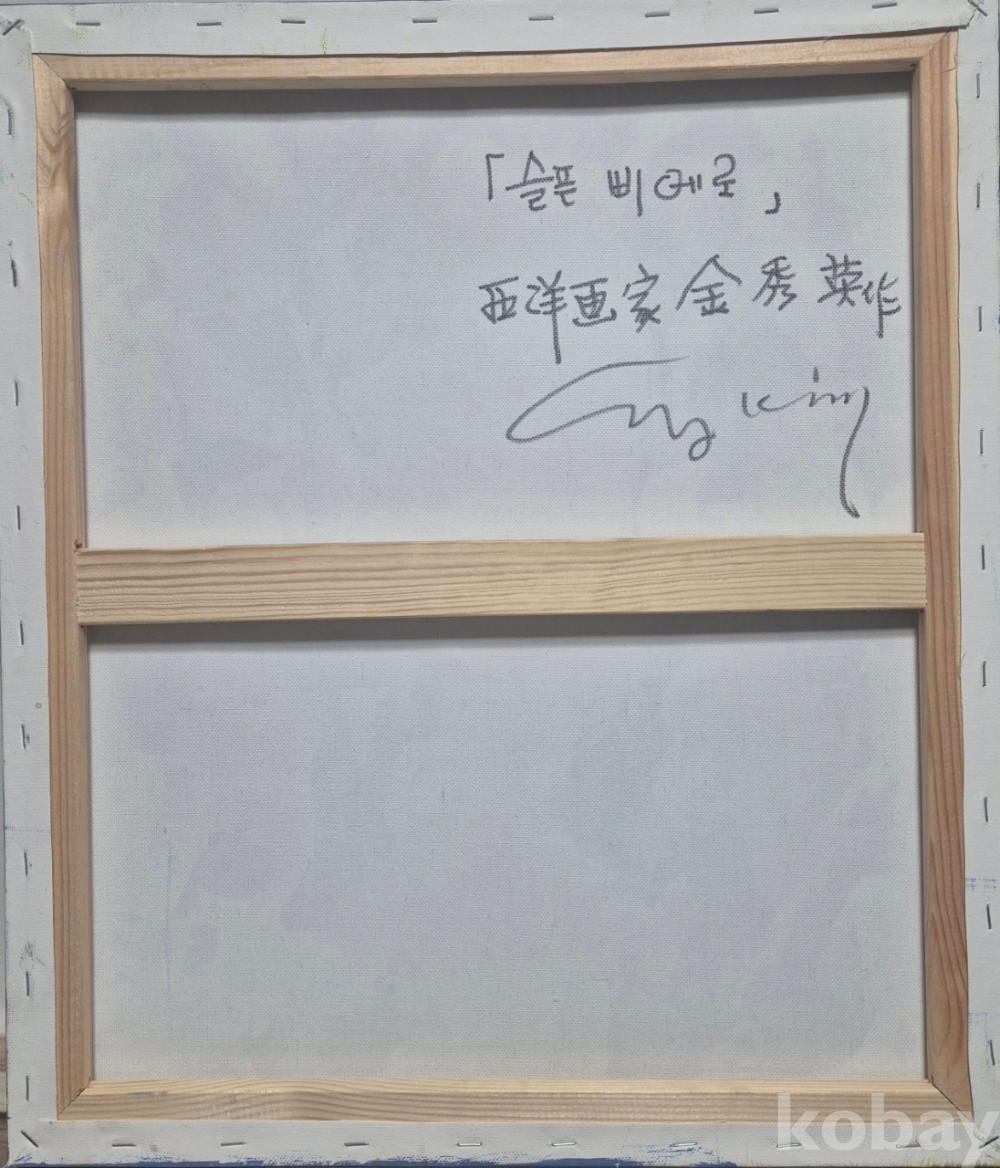 「슬픈 삐에로」
西洋画家 金秀英作
Kim
kobay